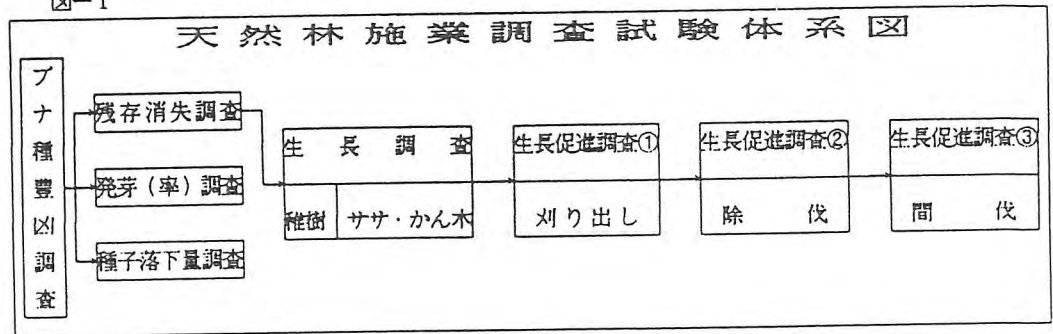 図-1
天然林施業調査試験体系図
ブナ種豊凶調査
残存消失調査
発芽(率)調査
種子落下量調査
生長調査
稚樹 ササ・かん木
生長促進調査①
刈り出し
生長促進調査②
除伐
生長促進調査③
間伐